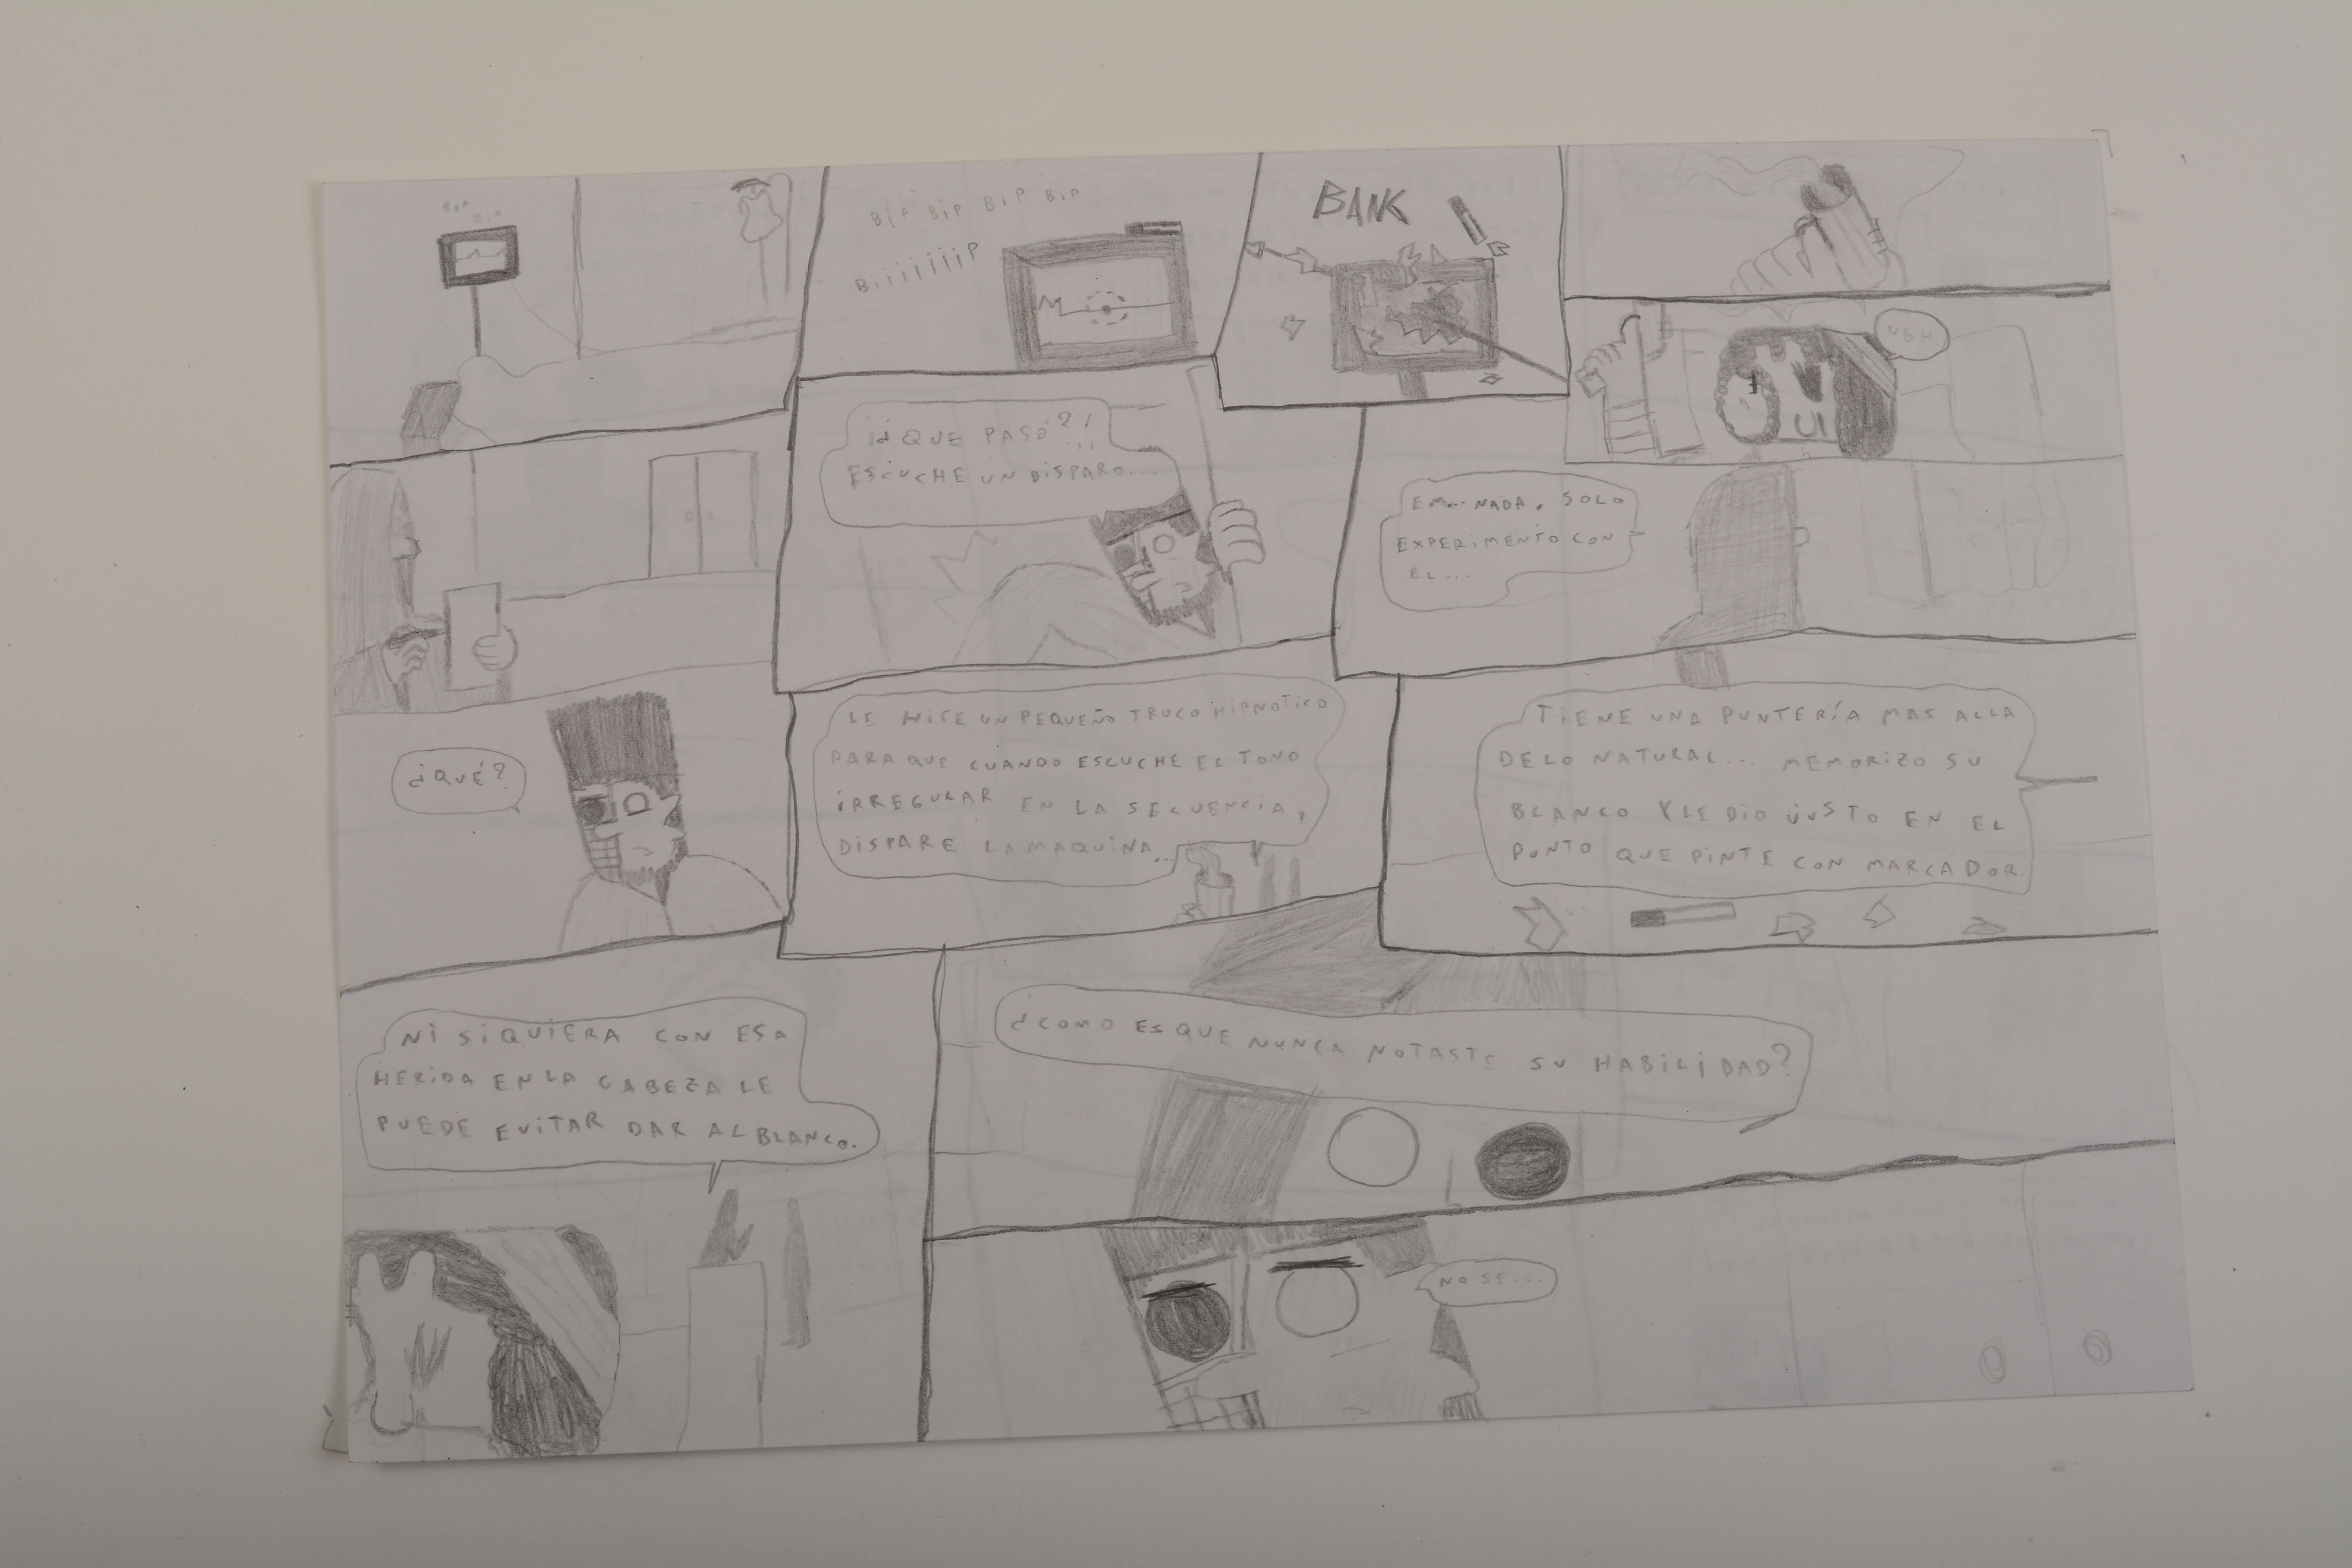 BiP
BiP
BiP BiP BiP BiP
BiiiiiiiP
BANK
UGH.
¡¿QUE PASÓ?!
ESCUCHE UN DISPARO...
EM... NADA, SOLO
EXPERIMENTO CON
EL...
¿QUÉ?
LE HICE UN PEQUEÑO TRUCO HIPNOTICO
PARA QUE CUANDO ESCUCHE EL TONO
IRREGULAR EN LA SECUENCIA,
DISPARE LA MAQUINA...
TIENE UNA PUNTERÍA MAS ALLA
DE LO NATURAL... MEMORIZO SU
BLANCO Y LE DIO JUSTO EN EL
PUNTO QUE PINTE CON MARCADOR.
NI SIQUIERA CON ESA
HERIDA EN LA CABEZA LE
PUEDE EVITAR DAR AL BLANCO.
¿COMO ES QUE NUNCA NOTASTE SU HABILIDAD?
NO SE...